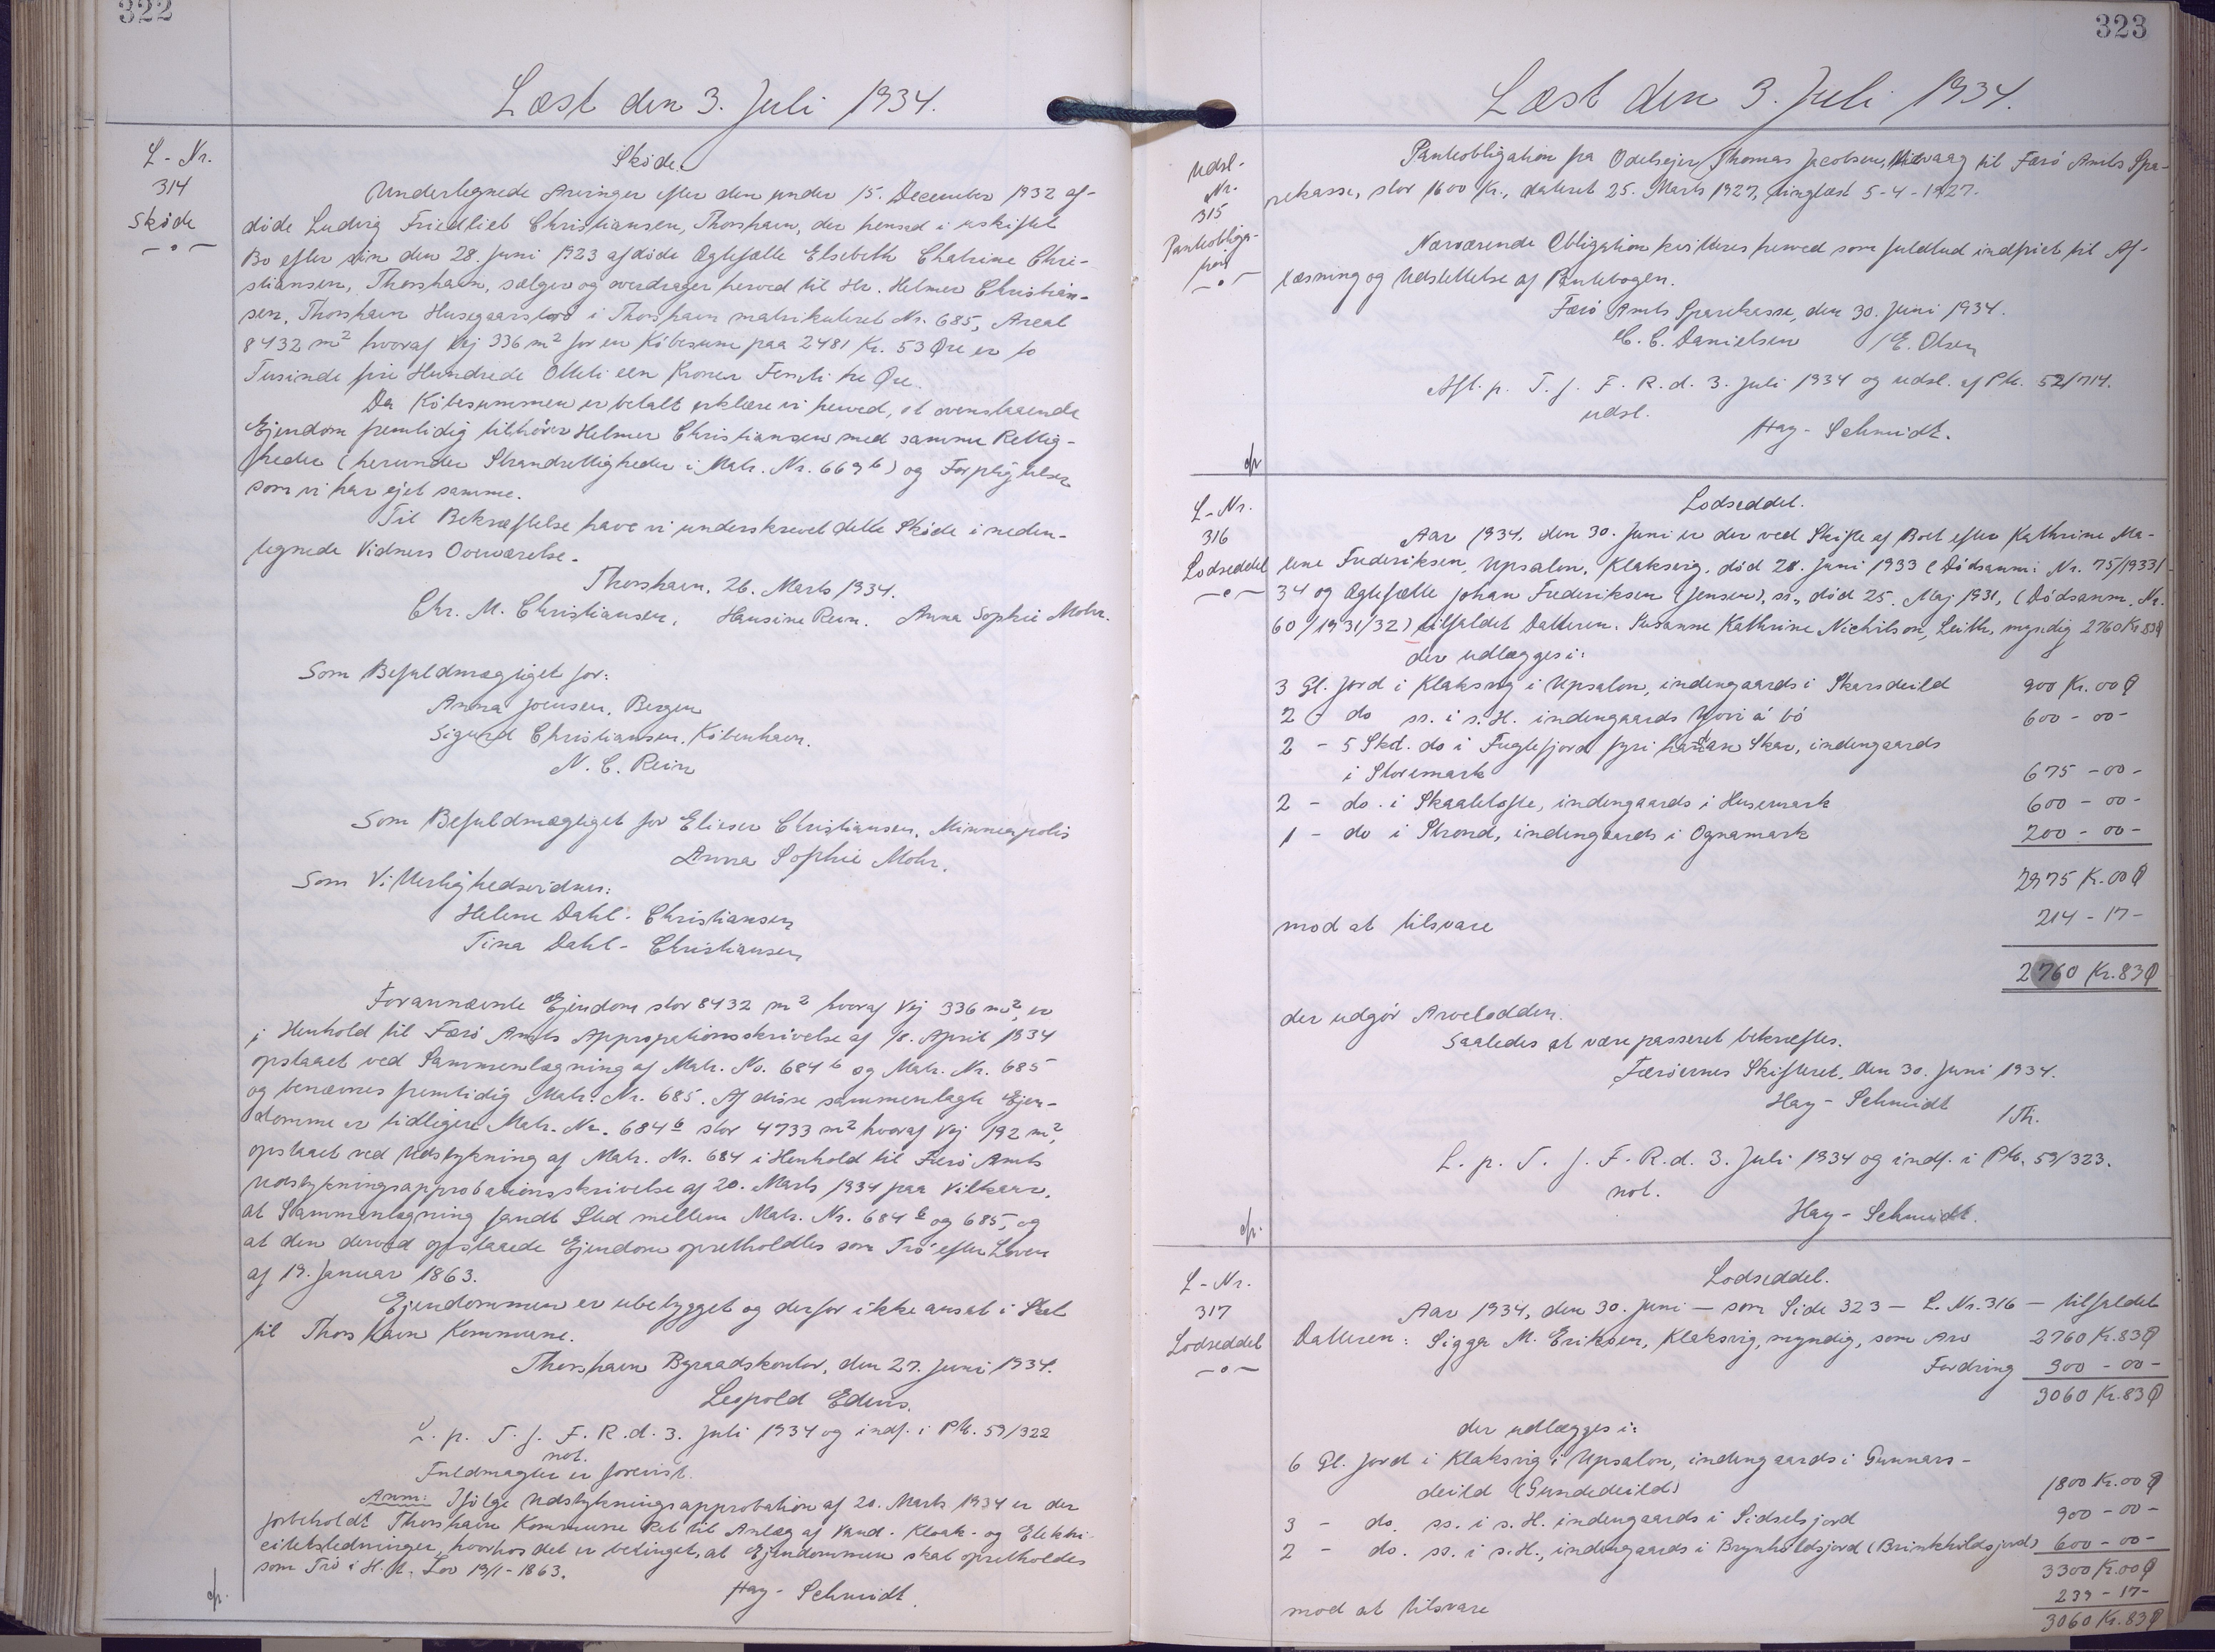 322
Læst den 3. Juli 1934.
L-Nr.
314
Skøde
Skøde.
Undertegnede Arvinger efter den under 15. December 1932 af-
døde Ludvig Friedlieb Christiansen, Thorshavn, der hensad i uskiftet
Bo efter sin den 28. Juni 1923 afdøde Ægtefælle Elsebeth Chatrine Chri-
stiansen, Thorshavn, sælger og overdrager herved til Hr. Helmer Christian-
sen, Thorshavn Husegaarstrø i Thorshavn matrikuleret Nr. 685, Areal
8432 m² hvoraf Vej 336 m² for en Købesum paa 2481 Kr. 53 Øre er to
Tusinde fire Hundrede Otteti een Kroner Femti tre Øre.
Da Købesummen er betalt erklære vi herved, at ovenstaaende
Ejendom fremtidig tilhører Helmer Christiansen med samme Rettig-
heder (herunder Strandrettigheder i Matr. Nr. 669 b) og Forpligtelser
som vi har ejet samme.
Til Bekræftelse have vi underskrevet dette Skøde i neden-
tegnede Vidners Overværelse.
Thorshavn, 26. Marts 1934.
Chr. M. Christiansen, Hansine Rein. Anna Sophie Mohr.
Som Befuldmægtiget for:
Anna Joensen, Bergen
Sigurd Christiansen, København.
N. C. Rein
Som Befuldmægtiget for Elieser Christiansen, Minneapolis
Anna Sophie Mohr.
Som Vitterlighedsvidner:
Helene Dahl-Christiansen
Tina Dahl-Christiansen
Forannævnte Ejendom stor 8432 m² hvoraf Vej 336 m², er
i Henhold til Færø Amts Appropationsskrivelse af April 1934
opstaaet ved Sammenlægning af Matr. No. 684 b og Matr. Nr. 685
og benævnes fremtidig Matr. Nr. 685. Af disse sammenlagte Ejen-
domme er tidligere Matr. Nr. 684 b stor 4733 m² hvoraf Vej 192 m²,
opstaaet ved Udstykning af Matr. Nr. 684 i Henhold til Færø Amts
Udstykningsapprobationsskrivelse af 20. Marts 1934 paa Vilkaar,
at Sammenlægning fandt Sted mellem Matr. Nr. 684 b og 685, og
at den derved opstaaede Ejendom opretholdtes som Trø efter Loven
af 19. Januar 1863.
Ejendommen er ubebygget og derfor ikke ansat i Skat
til Thorshavn Kommune.
Thorshavn Byraadskontor, den 27. Juni 1934.
Leopold Edens.
L. p. T. f. F. R. d. 3. Juli 1934 og indf. i Ptb. 59/322
not.
Fuldmagter er forevist.
Anm: Ifølge Udstykningsapprobation af 20. Marts 1934 er der
forbeholdt Thorshavn Kommune Ret til Anlæg af Vand- Kloak- og Elektri-
citetsledninger, hvorhos det er betinget, at Ejendommen skal opretholdes
som Trø i H. t. Lov 19/1-1863.
Hay-Schmidt.
323
Læst den 3. Juli 1934.
Udsl-
Nr.
315
Panteobliga-
tion
Panteobligation fra Odelsejer Thomas Jacobsen, Midvaag til Færø Amts Spa-
rekasse, stor 1600 Kr., dateret 25. Marts 1927, tinglæst 5-4-1927.
Nærværende Obligation kvitteres herved som fuldtud indfriet til Af-
læsning og Udslettelse af Pantebogen.
Færø Amts Sparekasse, den 30. Juni 1934.
C. C. Danielsen /E. Olsen
Afl. p. T. f. F. R. d. 3. Juli 1934 og udsl. af Ptb. 52/714.
udsl.
Hay-Schmidt.
L-Nr.
316
Lodseddel
Lodseddel.
Aar 1934, den 30. Juni er der ved Skifte af Boet efter Kathrine Ma-
lene Frederiksen, Upsalon, Klaksvig, død 28. Juni 1933 (Dødsanm: Nr. 75/1933/
34 og Ægtefælle Johan Frederiksen (Jensen), ss., død 25. Maj 1931, (Dødsanm. Nr.
60/1931/32) tilfaldet Datteren: Susanne Kathrine Nichilson, Leith, myndig 2760 Kr. 83 Ø
der udlægges i:
3 Gl. Jord i Klaksvig i Upsalon, indengaards i Skarsdeild 900 Kr. 00 Ø
2 - do ss. i s. H. indengaards Yvir á bö 600 - 00 -
2 - 5 Skd. do i Fuglefjord fyri handan Skar, indengaards
i Storemark 675 - 00 -
2 - do. i Skaaletofte, indengaards i Husemark 600 - 00 -
1 - do i Strond, indengaards i Ognamark 200 - 00 -
2975 Kr. 00 Ø
mod at tilsvare 214 - 17 -
2760 Kr. 83 Ø
der udgør Arvelodden.
Saaledes at være passeret bekræftes.
Færøernes Skifteret, den 30. Juni 1934.
Hay-Schmidt
/Th.
L. p. T. f. F. R. d. 3. Juli 1934 og indf. i Ptb. 59/323.
not.
Hay-Schmidt.
L-Nr.
317
Lodseddel
Lodseddel.
Aar 1934, den 30. Juni — som Side 323 — L. Nr. 316 — tilfaldet
Datteren: Sigga M. Eriksen, Klaksvig, myndig, som Arv 2760 Kr. 83 Ø
Fordring 300 - 00 -
3060 Kr. 83 Ø
der udlægges i:
6 Gl. Jord i Klaksvig i Upsalon, indengaards i Gunnars-
deild (Gundedeild) 1800 Kr. 00 Ø
3 - do. ss. i s. H. indengaards i Sidselsjord 900 - 00 -
2 - do. ss. i s. H., indengaards i Brynholdsjord (Brinkhildsjord) 600 - 00 -
3300 Kr. 00 Ø
mod at tilsvare 239 - 17 -
3060 Kr. 83 Ø